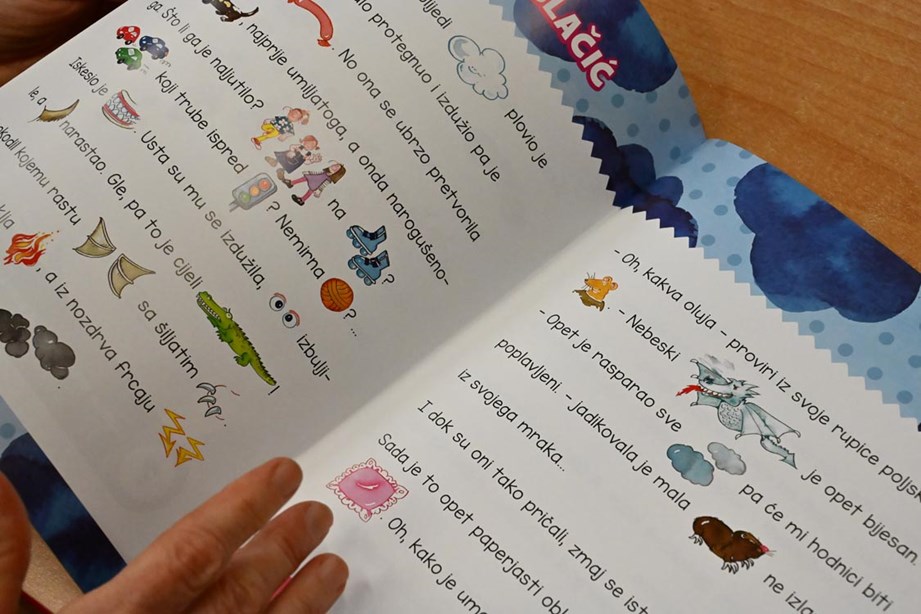 LAČIĆ
plovio je
protegnuo i izdužio pa je
. No ona se ubrzo pretvorila
, najprije umiljatoga, a onda narogušeno-
ga. Što li ga je naljutilo? na ?
koji trube ispred ? Nemirna ?...
Iskesio je . Usta su mu se izdužila, izbulji-
le, a narastao. Gle, pa to je cijeli !
kojemu rastu sa šiljatim .
, a iz nozdrva frcaju
.
- Oh, kakva oluja - proviri iz svoje rupice
. - Nebeski je opet bijesan.
- Opet je rasparao sve pa će mi hodnici biti
poplavljeni. - jadikovala je mala ne
iz svojega mraka...
I dok su oni tako pričali, zmaj se
Sada je to opet paperjasti
. Oh, kako je